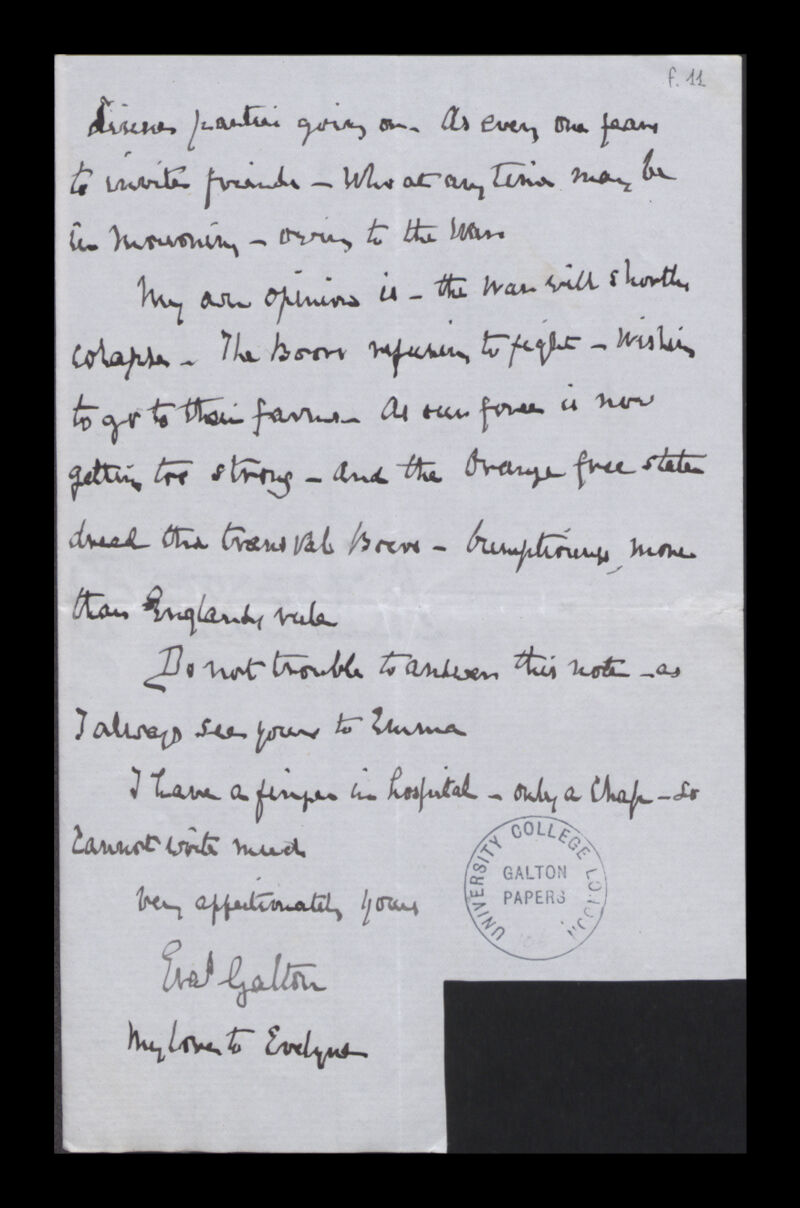 f. 11
dinner parties going on - As every one fears
to invite friends - Who at any time may be
in Mourning - owing to the War
My own opinion is - the War will shortly
colapse - The Boors refusing to fight - Wishing
to go to their farms - As our force is now
getting too strong - And the Orange free states
dread the transval Boers - bumptiousness, more
than Englands, rule
Do not trouble to answer this note - as
I always see yours to Emma
I have a finger in hospital - only a Chap - So
Cannot write much
very affectionately yours
Eras Galton
My love to Evelyne
UNIVERSITY COLLEGE LONDON
GALTON
PAPERS